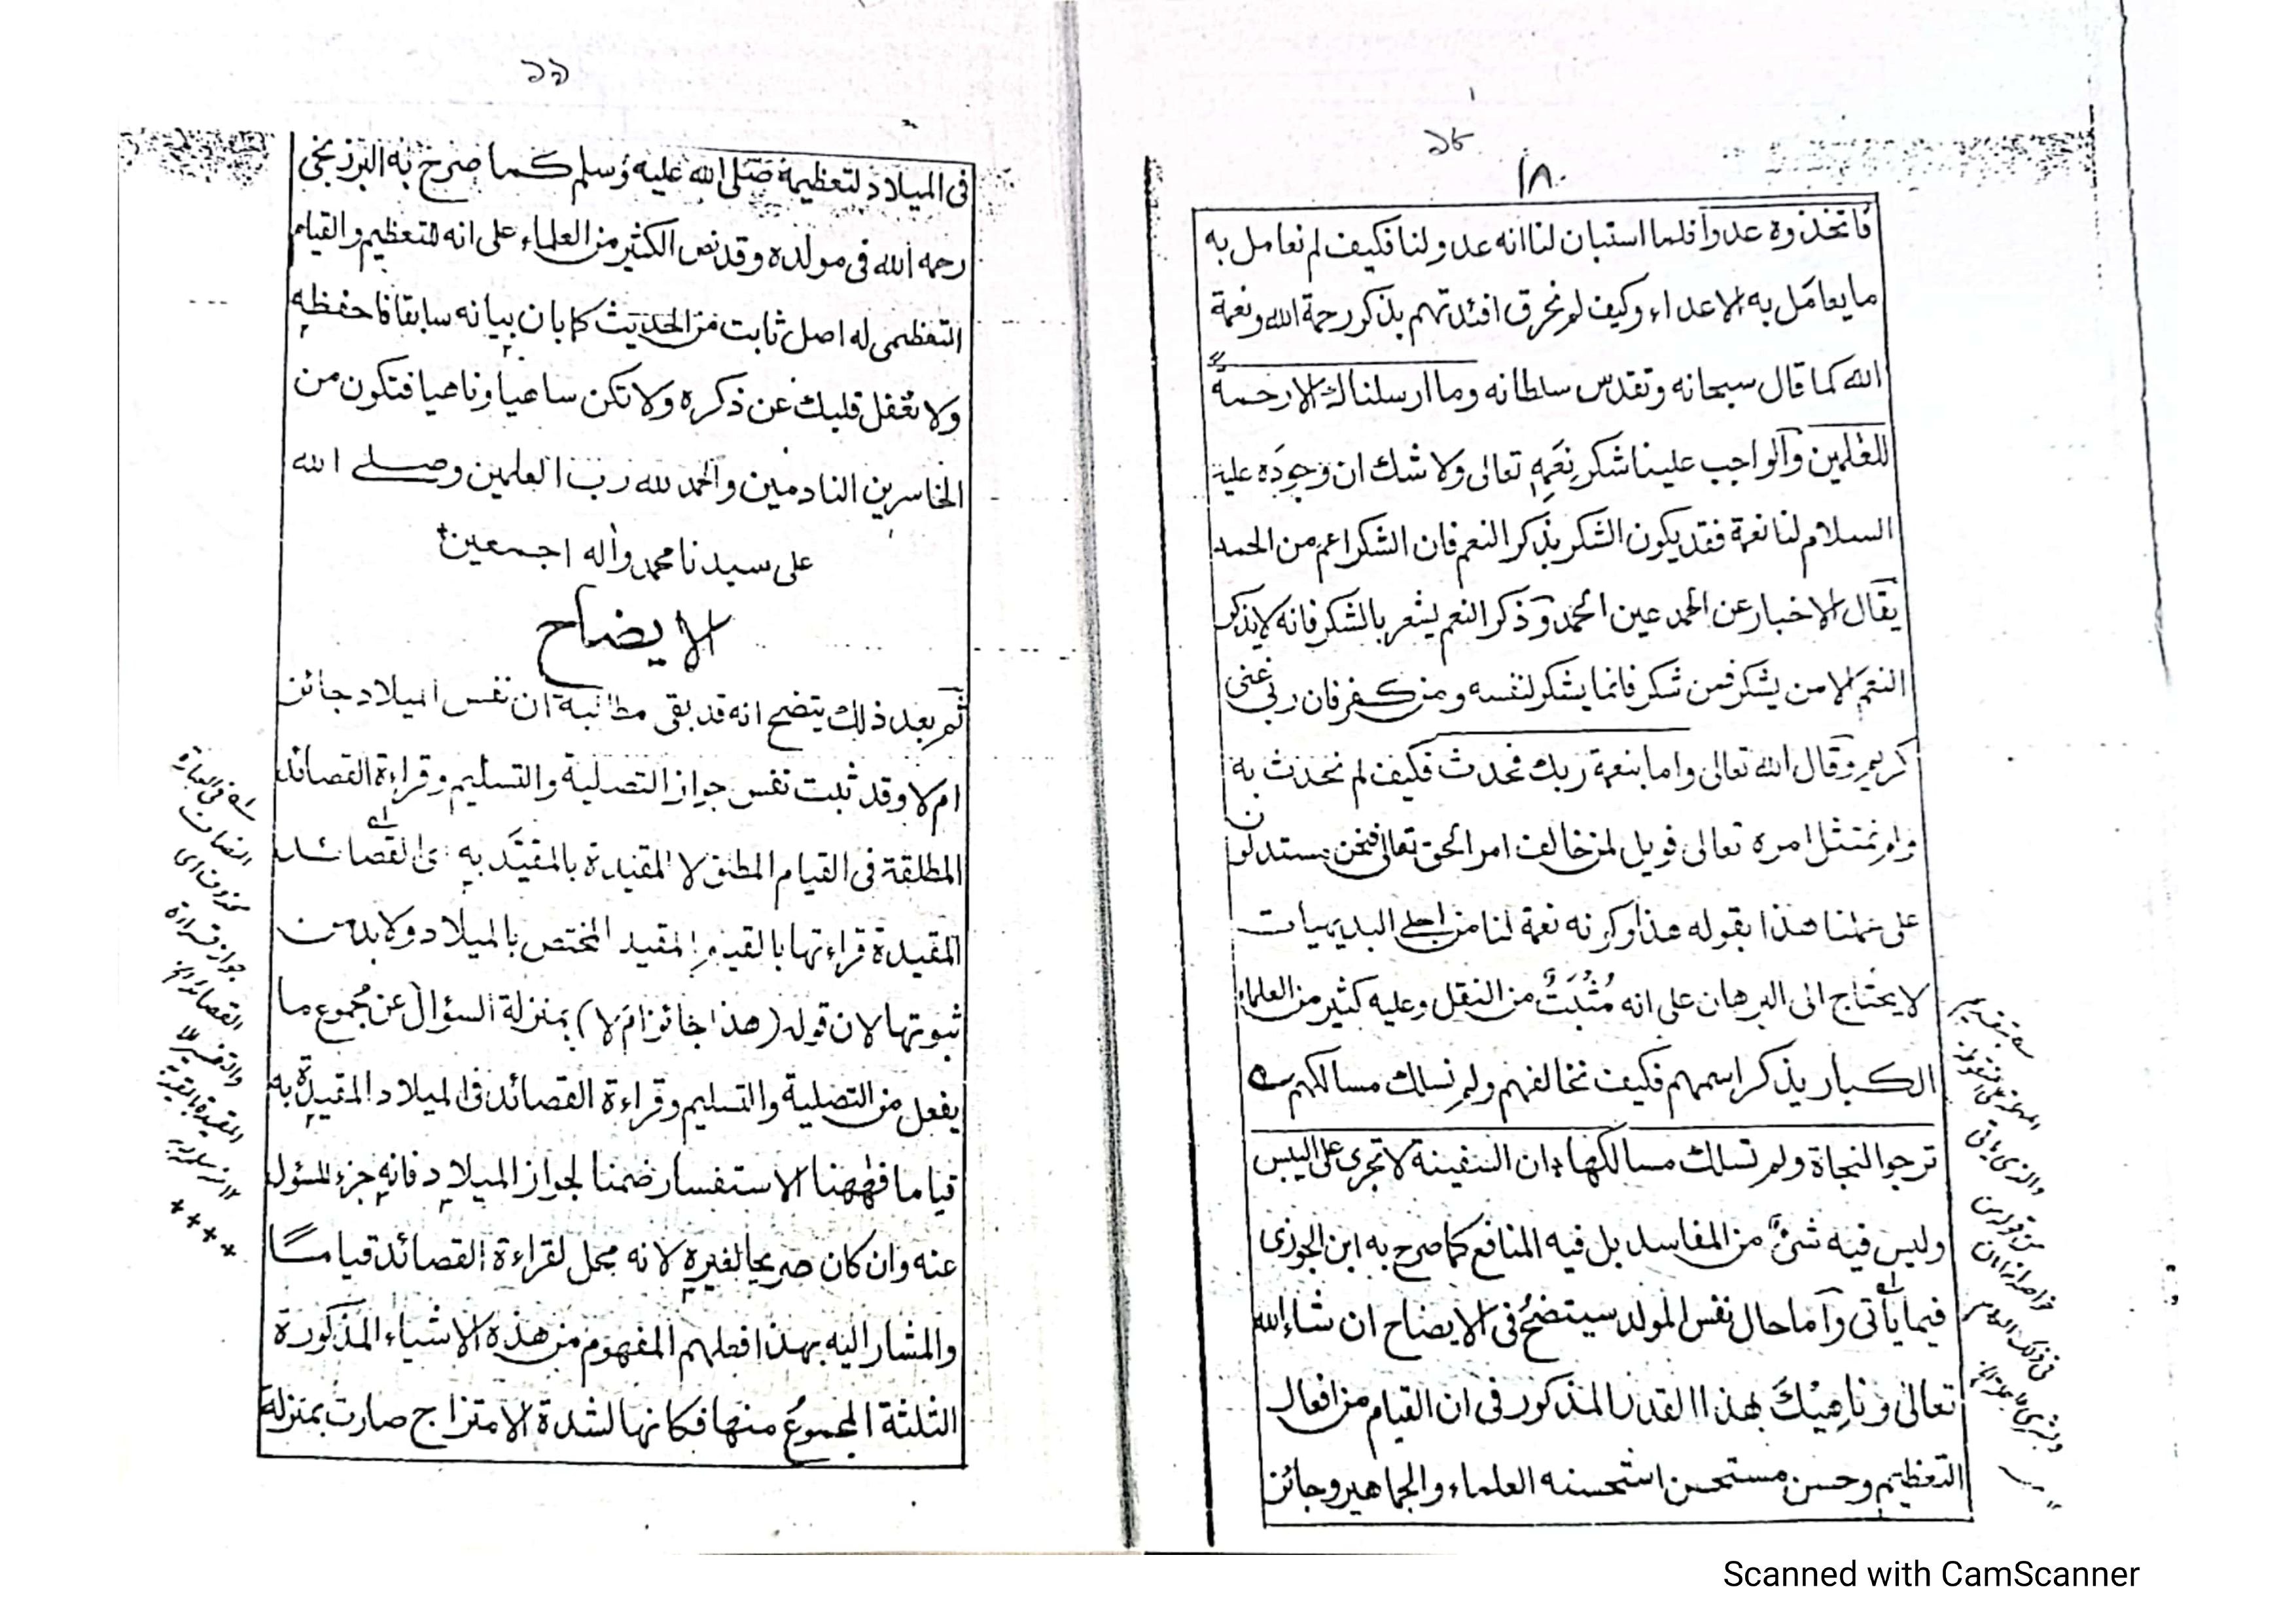 ١٨
فاتخذوه عدوا فلما استبان لنا انه عدو لنا فكيف لم نعامل به
ما يعامل به الاعداء وكيف لم نحرق افئدتهم بذكر رحمة الله ونعمة
الله كما قال سبحانه وتقدس سلطانه وما ارسلناك الا رحمة
للعٰلمين والواجب علينا شكر نعمه تعالى ولا شك ان وجوده عليه
السلام لنا نعمة فقد يكون الشكر بذكر النعم فان الشكر اعم من الحمد
يقال الاخبار عن الحمد عين الحمد وذكر النعم يشعر بالشكر فانه لا يذكر
النعم الا من يشكر فمن شكر فانما يشكر لنفسه ومن كفر فان ربي غني
كريم وقال الله تعالى واما بنعمة ربك فحدث فكيف لم نحدث به
ولم نمتثل امره تعالى فويل لمن خالف امر الحق تعالى فنحن مستدلون
على عملنا هذا بقوله هذا وكونه نعمة لنا من اجلى البديهيات
لا يحتاج الى البرهان على انه مُثْبَتٌ من النقل وعليه كثير من العلماء
الكبار يذكر اسمهم فكيف نخالفهم ولم نسلك مسالكهم
ترجوا النجاة ولم تسلك مسالكها ان السفينة لا تجرى على اليبس
وليس فيه شئ من المفاسد بل فيه المنافع كما صرح به ابن الجوزى
فيما يأتى وأما حال نفس المولد سيتضح فى الايضاح ان شاء الله
تعالى وناهيك بهذا القدر المذكور فى ان القيام من افعال
التعظيم وحسن مستحسن استحسنه العلماء والجماهير وجائز
فى الميلاد لتعظيمه صلى الله عليه وسلم كما صرح به البرزنجى
رحمه الله فى مولده وقد نص الكثير من العلماء على انه للتعظيم والقيام
التعظيمى له اصل ثابت من الحديث كما بان بيانه سابقا فاحفظه
ولا تغفل قلبك عن ذكره ولا تكن ساهيا وناهيا فتكون من
الخاسرين النادمين والحمد لله رب العلمين وصلى الله
على سيدنا محمد واٰله اجمعين
الايضاح
ثم بعد ذلك يتضح انه قد بقى مطالبة ان نفس الميلاد جائز
ام لا وقد ثبت نفس جواز التصلية والتسليم وقراءة القصائد
المطلقة فى القيام المطلق لا المقيدة بالمقيَّد به اى القصائد
المقيدة قراءتها بالقيام المقيد المختص بالميلاد ولا بد من
ثبوتها لان قوله (هذا جائز ام لا) بمنزلة السؤال عن مجموع ما
يفعل من التصلية والتسليم وقراءة القصائد فى الميلاد المقيدة به
قياما فههنا الاستفسار ضمنا لجواز الميلاد فانه جزء المسئول
عنه وان كان صريحا لغيره لانه محمل لقراءة القصائد قياما
والمشار اليه بهذا فعلهم المفهوم من هذه الاشياء المذكورة
الثلثة المجموع منها فكانها لشدة الامتزاج صارت بمنزلة
فى العبارة
المضاف
محذوف اى
جواز قراءة
القصائد الخ
Scanned with CamScanner